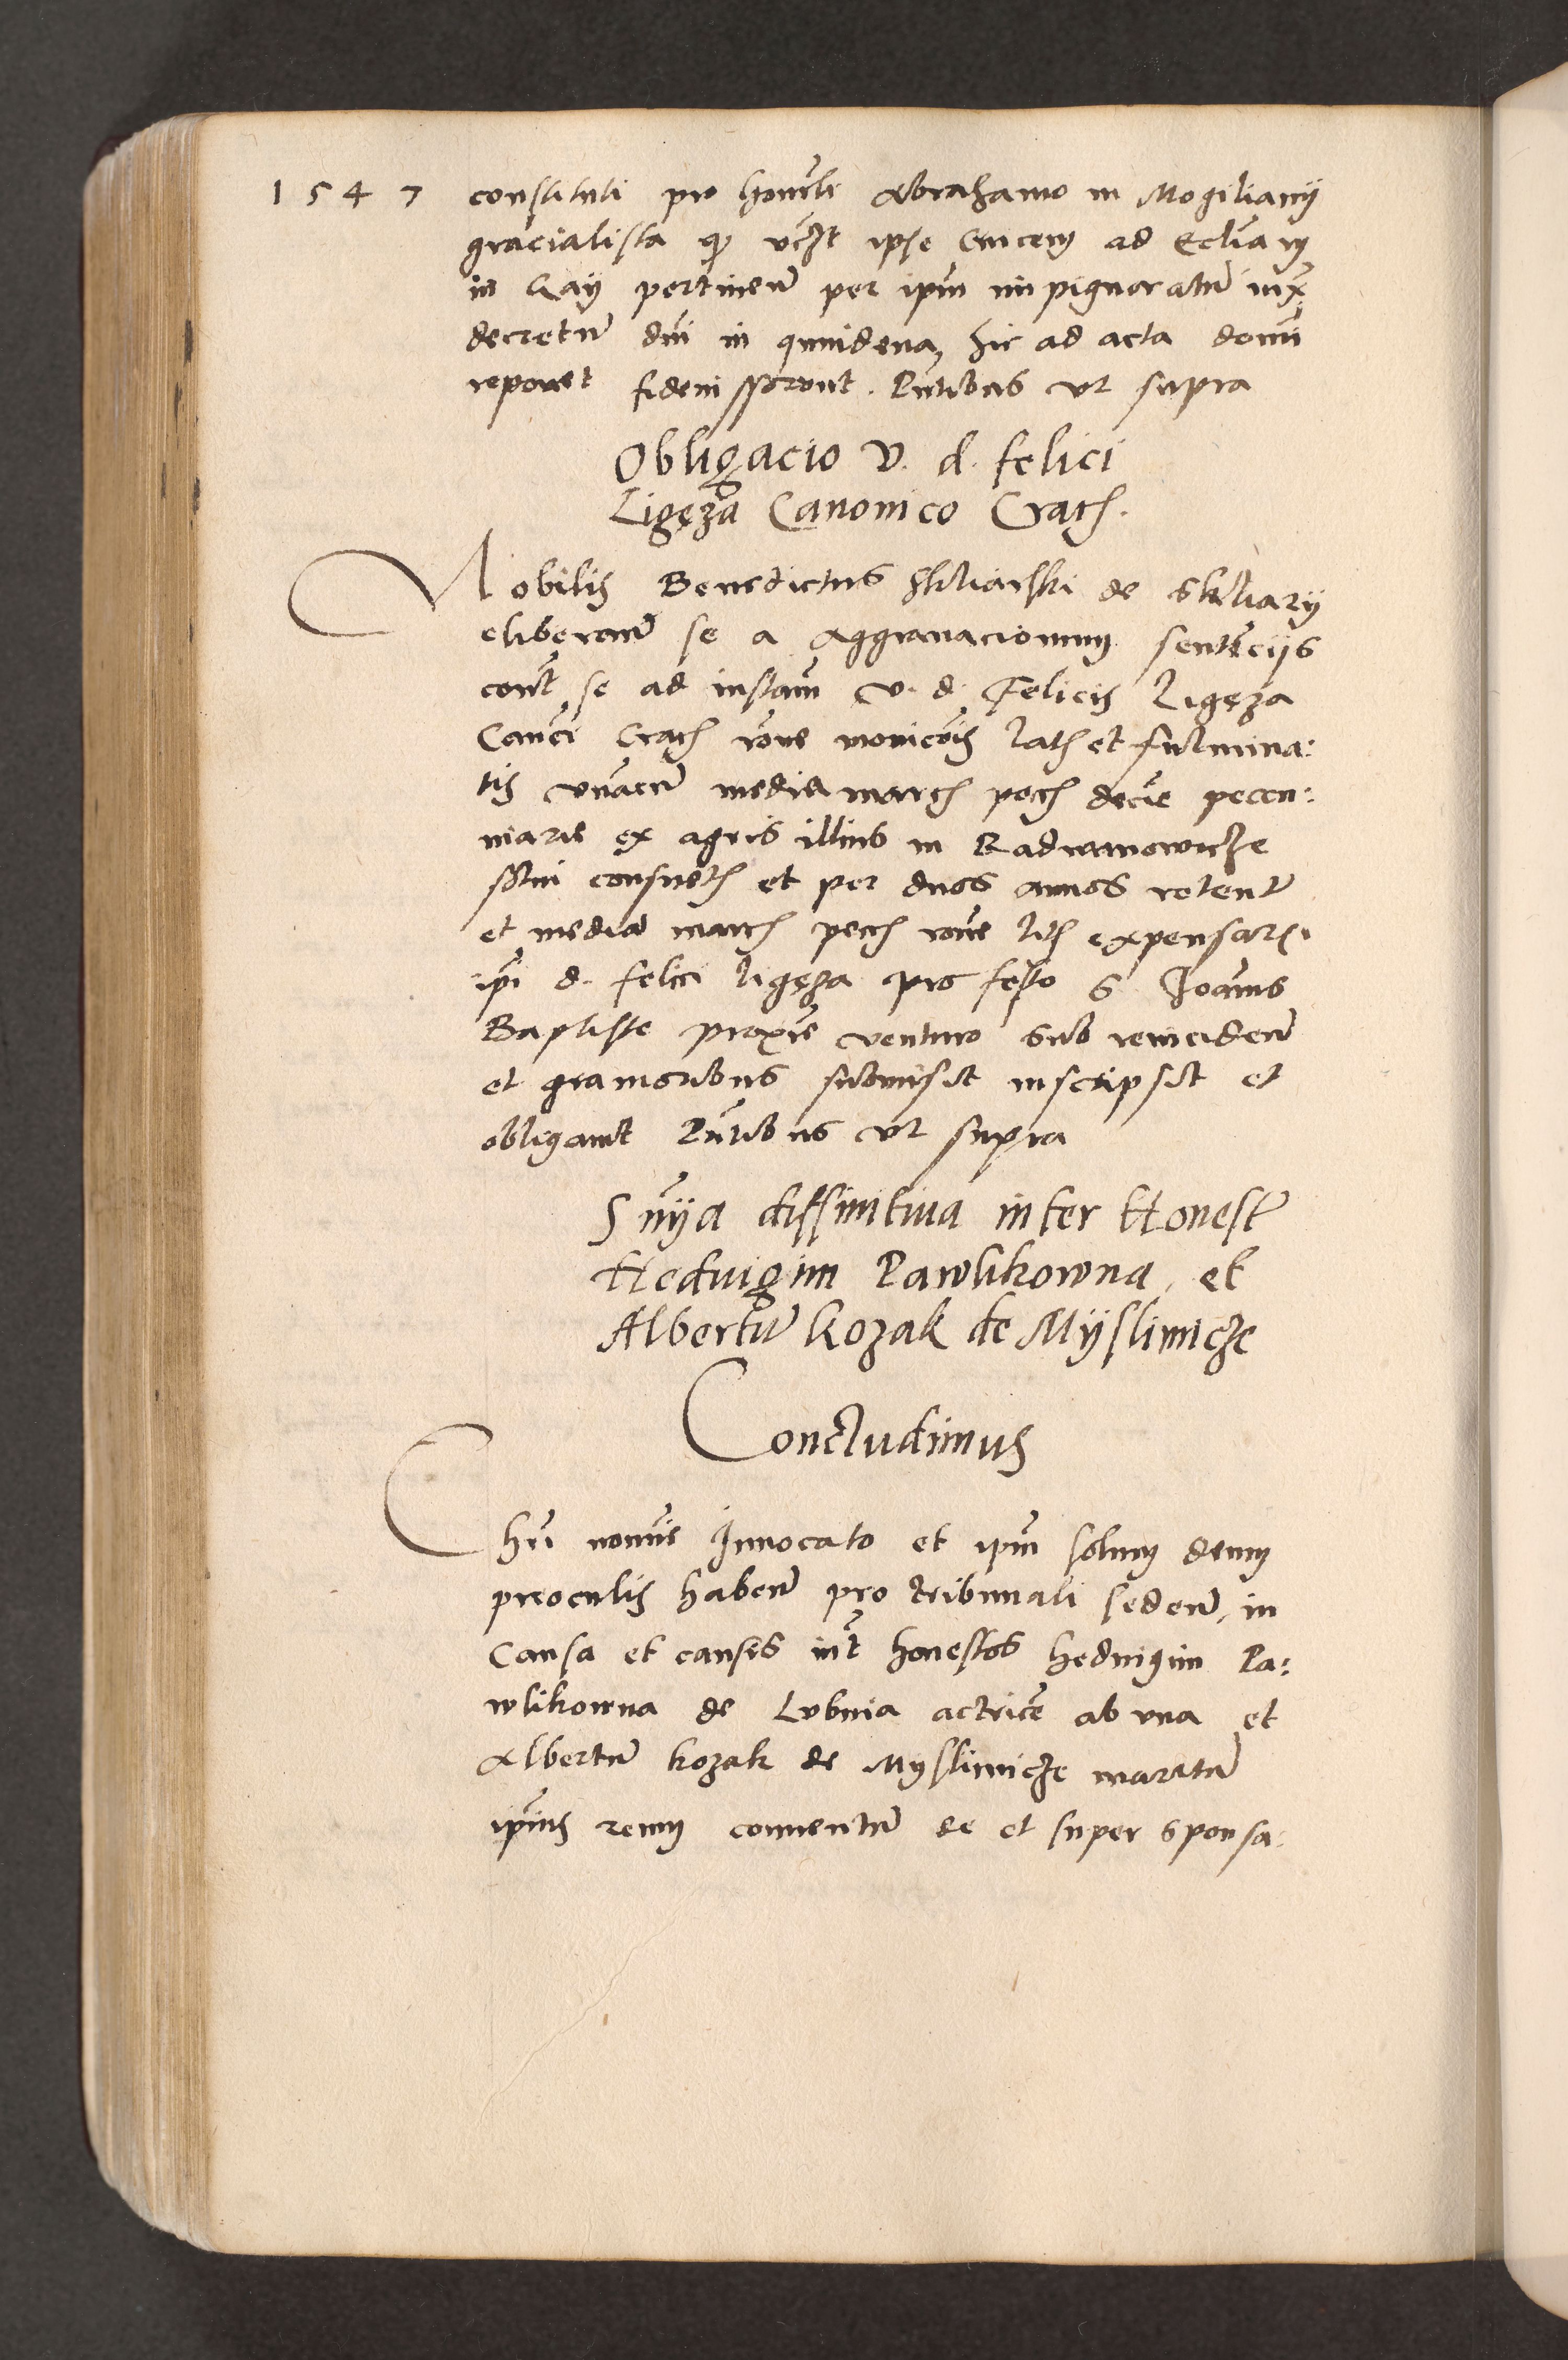 1547 constituti pro honorabili Abrahamo in Mogiliany
gracialista quod videlicet ipse Crucem ad Eccliam
in Gay pertinen per ipm impignoratum iux
decretum dni in quindena hic ad acta domi
reponet fideiusserunt. Pntibus vt supra
Obligacio V. d. felici
Ligęza Canonico Crac.
Nobilis Benedictus Skliarski de Skliary
eliberan se a aggravacionum sentenciis
cont se ad instam V. d. Felicis Ligęza
Canci Crac rone monicois lat et fulmina:
tis vnacum media march pecc decie peccu:
niarie ex agris illius in Radwanowicze
solui consuet et per duos annos retent
et media march pecc rone lit expensar
ipi d. felici Ligęza pro festo S. Joannis
Baptiste proxie venturo sub reinciden
et gravioribus submisit inscripsit et
obligavit Pntibus vt supra
Snia diffinitiua inter Honest
Heduigim Pawlikowna, et
Albertum Kozak de Myslimicze
Concludimus
Chri nomine Inuocato et ipm solum deum
preoculis haben pro tribunali seden, in
Causa et causis int honestos heduigim Pa:
wlikowna de Lubnia actricem ab vna et
Albertum kozak de Myslimicze maritum
ipius reum conuentum de et super sponsa: